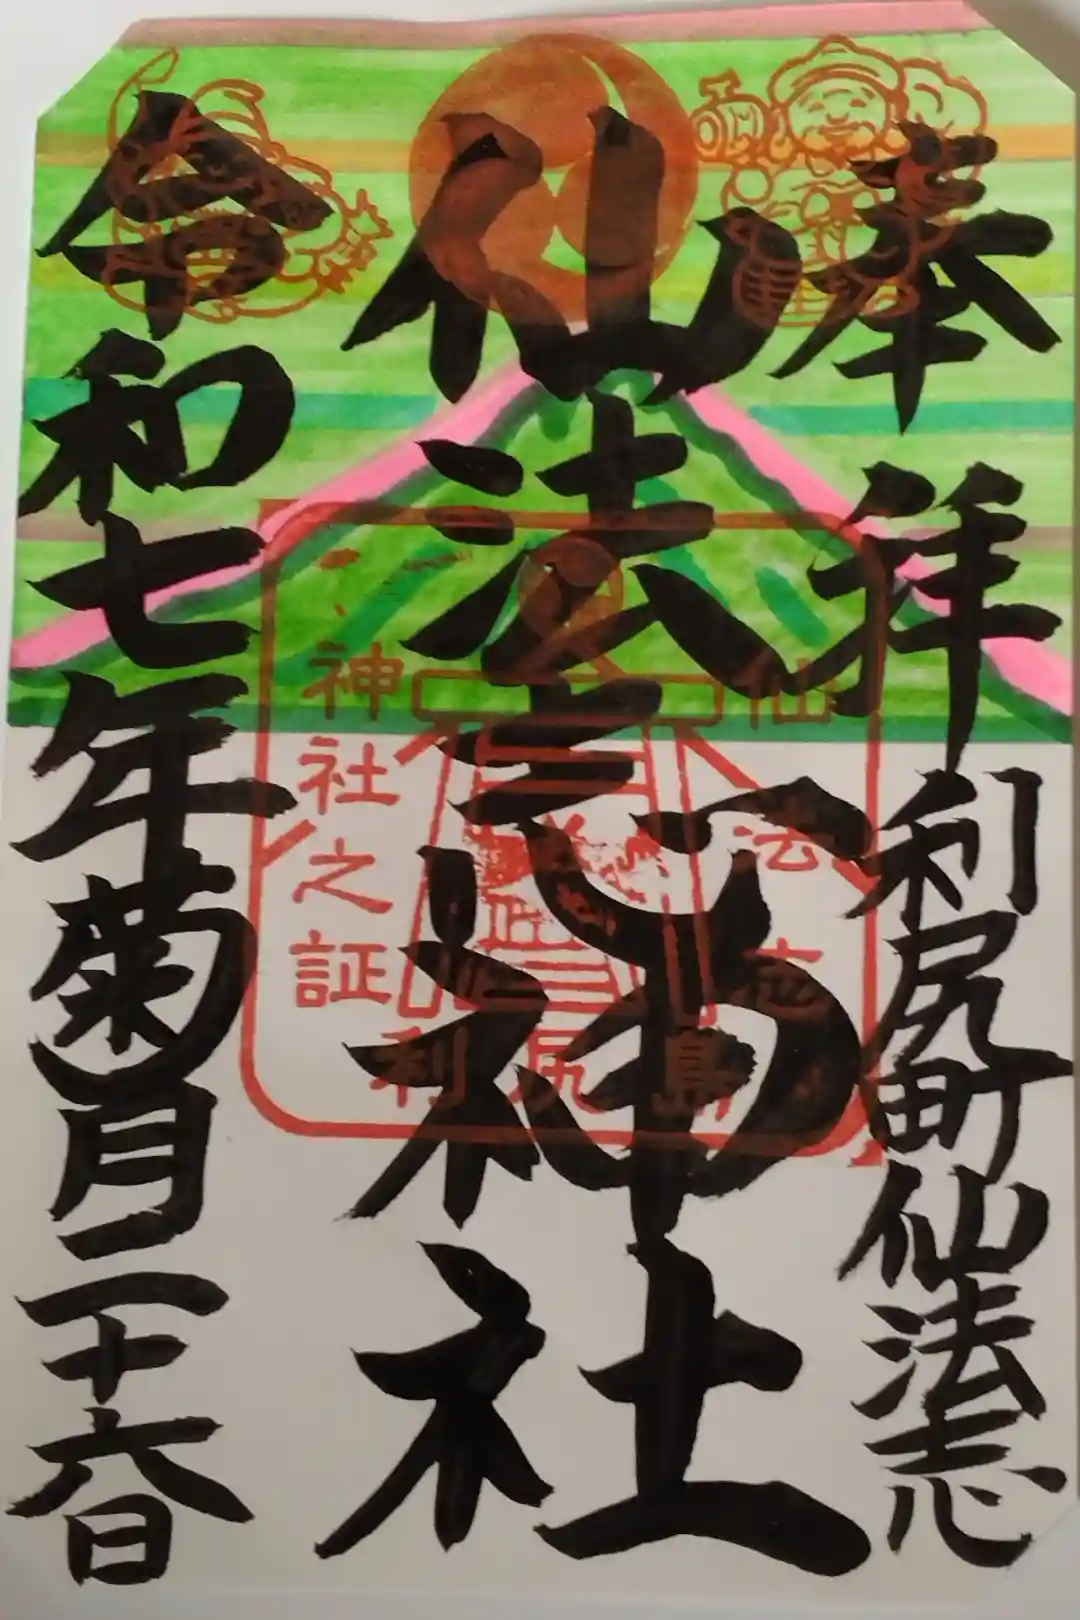 奉拝
利尻町仙法志
仙法志神社
令和七年菊月二十六日
仙法志
神社之証
利尻島